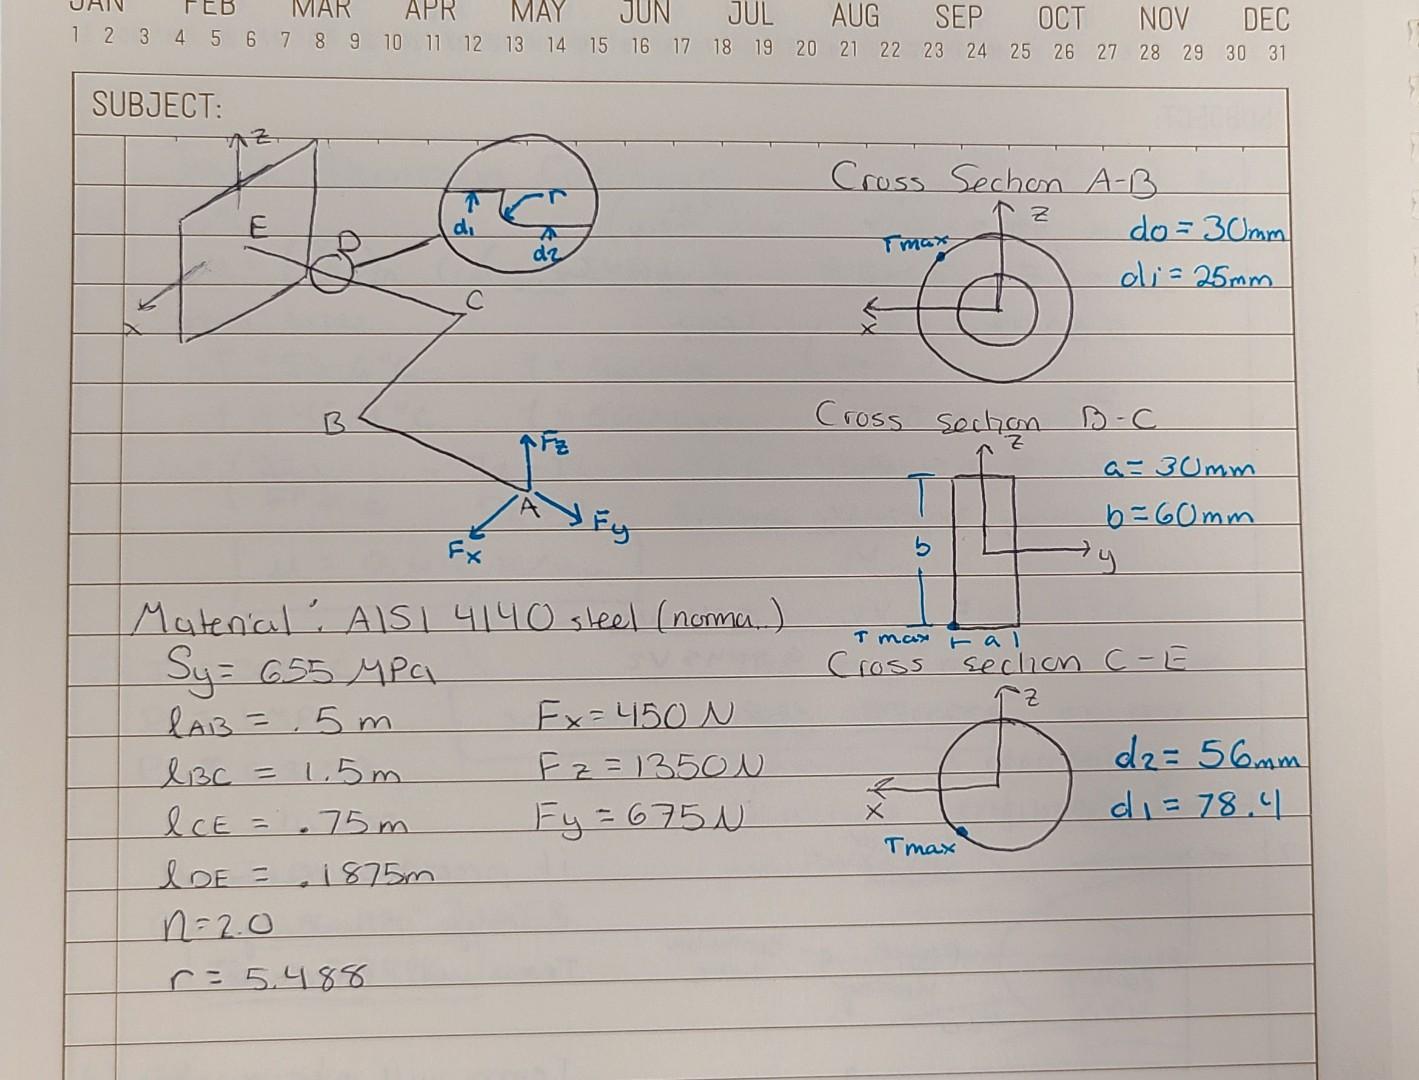 JAN FEB MAR APR MAY JUN JUL AUG SEP OCT NOV DEC
1 2 3 4 5 6 7 8 9 10 11 12 13 14 15 16 17 18 19 20 21 22 23 24 25 26 27 28 29 30 31
SUBJECT:
z
E
D
x
C
B
A
Fz
Fx
Fy
d1
r
d2
Cross Section A-B
z
Tmax
x
do = 30mm
di = 25mm
Cross section B-C
z
a = 30mm
b = 60mm
b
y
Tmax
a
Cross section C-E
z
x
Tmax
d2 = 56mm
d1 = 78.4
Material: AISI 4140 steel (norma.)
Sy = 655 MPa
lAB = .5 m Fx = 450 N
lBC = 1.5 m Fz = 1350 N
lCE = .75 m Fy = 675 N
lDE = .1875m
n = 2.0
r = 5.488